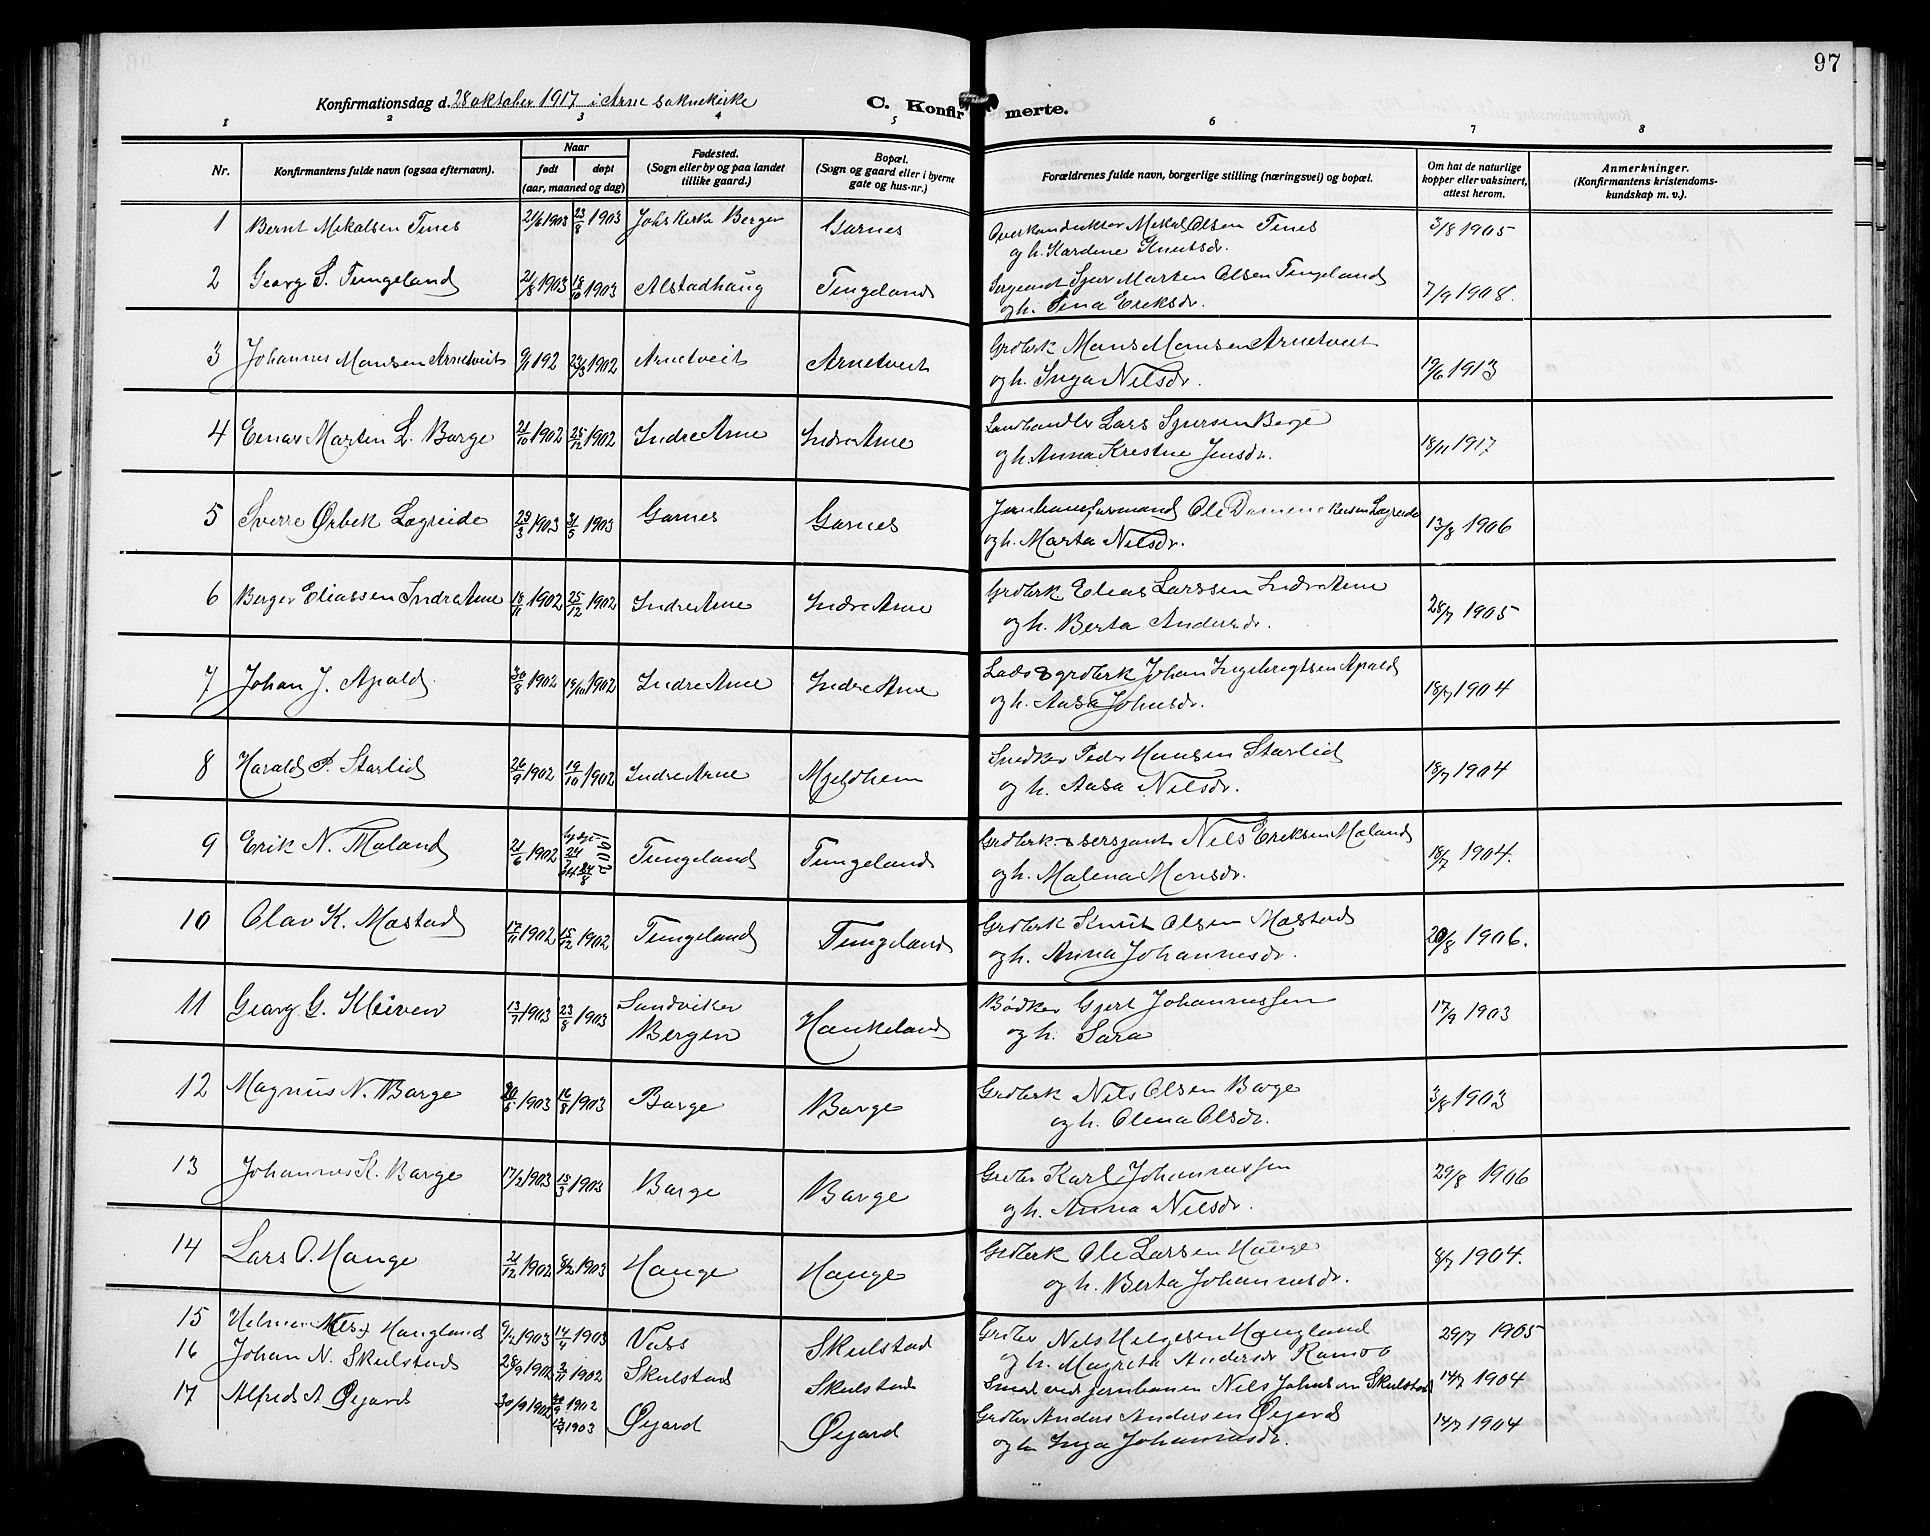 97
Konfirmationsdag d. 28 oktober 1917 i Arne soknekirke
C. Konfirmerte.
1 2 3 4 5 6 7 8
Nr. Konfirmantens fulde navn (ogsaa efternavn). Naar født døpt (aar, maaned og dag) Fødested. (Sogn eller by og paa landet tillike gaard.) Bopæl. (Sogn og gaard eller i byerne gate og hus-nr.) Forældrenes fulde navn, borgerlige stilling (næringsvei) og bopæl. Om hat de naturlige kopper eller vaksinert, attest herom. Anmerkninger. (Konfirmantens kristendomskundskap m. v.).
1 Bernt Mikalsen Tenes 21/6 1903 23/8 1903 Johs kirke Bergen Garnes Overkonduktør Mikal Olsen Tenes 3/8 1905
og h. Hardine Knutsdr.
2 Georg S. Tungeland 21/8 1903 18/10 1903 Alstadhaug Tungeland Sergeant Sjur Marten Olsen Tungeland 7/9 1908.
og h. Sina Eriksdr.
3 Johannes Monsen Arnetveit 9/1 192 1902 Arnetveit Arnetveit Grdbrk Mons Monsen Arnetveit 19/6 1913
og h. Inga Nilsdr.
4 Einar Martin L. Borge 21/10 1902 25/12 1902 Indre Arne Indre Arne Landhandler Lars Sjursen Borge 18/11 1917
og h. Anna Kristine Jensdr.
5 Sverre Ørbek Lægreide 29/3 1903 31/5 1903 Garnes Garnes Jernbaneformand Ole Lægreide 13/8 1906
og h. Marta Nilsdr.
6 Berger Eliassen Indre Arne 18/11 1902 25/12 1902 Indre Arne Indre Arne Grdbrk Elias Larssen Indre Arne 28/7 1905
og h. Berta Andersdr.
7 Johan J. Apald 30/8 1902 19/10 1902 Indre Arne Indre Arne Lods & grdbrk Johan Ingebrigtsen Apald 18/7 1904
og h. Aasa Johnsdr.
8 Harald P. Starlid 26/9 1902 19/10 1902 Indre Arne Mjeldhem Snedker Peder Hansen Starlid 18/7 1904
og h. Aasa Nilsdr.
9 Erik N. Mæland 21/6 1902 hjdøpt 24/8 1902 Tungeland Tungeland Grdbrk & sersjant Nils Eriksen Mæland 18/7 1904.
og h. Malena Monsdr.
10 Olav K. Mæstad 17/11 1902 15/12 1902 Tungeland Tungeland Grdbrk Knut Olsen Mæstad 20/8 1906.
og h. Anna Johannesdr.
11 Georg G. Kleiven 13/7 1903 23/8 1903 Sandviken Haukeland Bødker Gjert Johannessen 17/9 1903
Bergen og h. Sara
12 Magnus N. Borge 20/6 1903 16/8 1903 Borge Borge Grdbrk Nils Olsen Borge 3/8 1903
og h. Olena Olsdr.
13 Johannes K. Borge 17/2 1903 15/3 1903 Borge Borge Grdbr Karl Johannessen 29/8 1906
og h. Anna Nilsdr.
14 Lars O. Hauge 21/12 1902 8/2 1903 Hauge Hauge Grdbrk Ole Larsen Hauge 8/7 1904.
og h. Berta Johannesdr.
15 Helmer Haugland 9/2 1903 14/4 1903 Voss Skulstad Grdbr Nils Helgesen Haugland 29/7 1905
og h. Magreta Andersdr
16 Johan N. Skulstad 28/9 1902 1902 Skulstad Skulstad Smed ved jernbanen Nils Johnson Skulstad 14/7 1904
17 Alfred A Øygard 30/9 1902 1902 1903 Øygard Øygard Grdbr Anders Andersen Øygard 14/7 1904
og h. Inga Johannesdr.